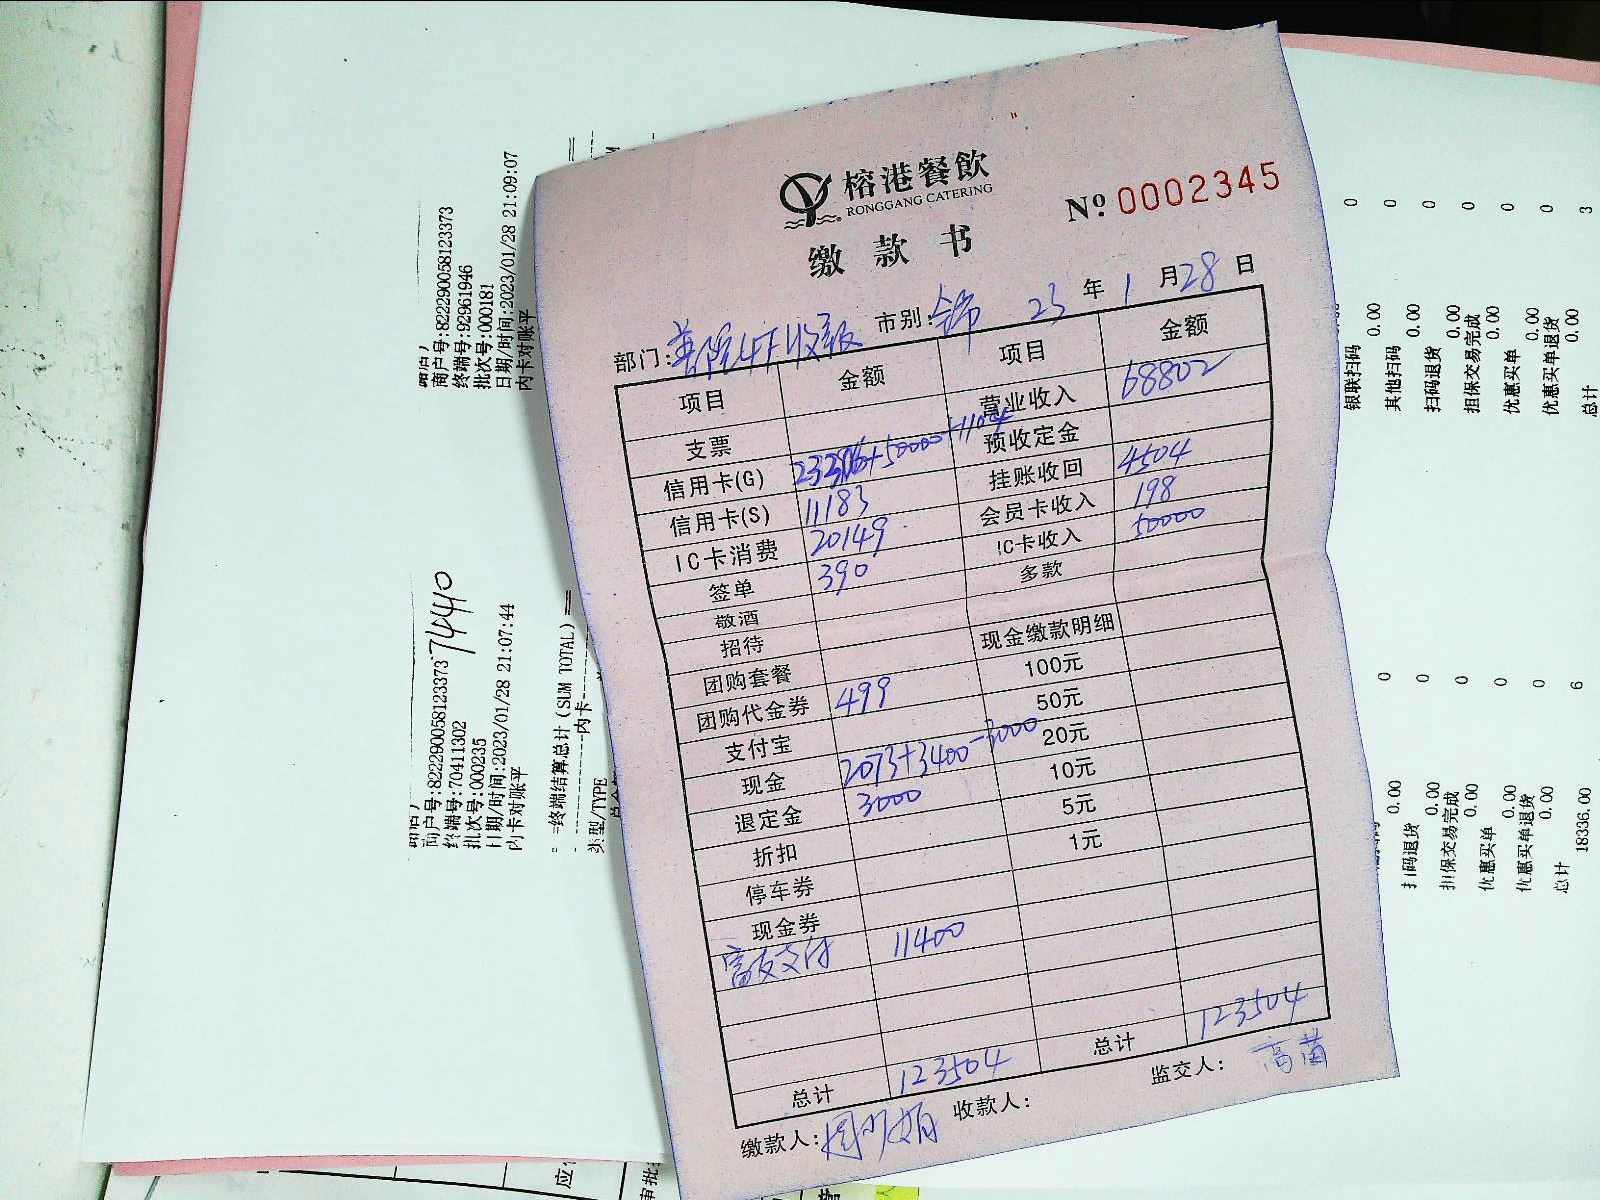 榕港餐飲
RONGGANG CATERING
Nº 0002345
缴款书
部门: 市别: 全市 23 年 1 月 28 日
项目 金额 项目 金额
支票 营业收入 68802
信用卡(G) +50000+1104 预收定金
信用卡(S) 11183 挂账收回 4504
IC卡消费 20149 会员卡收入 198
签单 390 IC卡收入 50000
敬酒 多款
招待
团购套餐 现金缴款明细
团购代金券 499 100元
支付宝 50元
现金 2073+3400-3000 20元
退定金 3000 10元
折扣 5元
停车券 1元
现金券
富友支付 11400
总计 123504 总计 123504
缴款人: 收款人: 监交人: 高茵
商户号:822290058123373
终端号:92961946
批次号:000181
日期/时间:2023/01/28 21:09:07
内卡对账平
商户号:822290058123373 74440
终端号:70411302
批次号:000235
日期/时间:2023/01/28 21:07:44
内卡对账平
=终端结算总计(SUM TOTAL)=
内卡
类型/TYPE
银联扫码 0
0.00
其他扫码 0
0.00
扫码退货 0
0.00
担保交易完成 0
0.00
优惠买单 0
0.00
优惠买单退货 0
0.00
总计 3
0
0.00
扫码退货 0
0.00
担保交易完成 0
0.00
优惠买单 0
0.00
优惠买单退货 0
0.00
总计 6
18336.00
审批